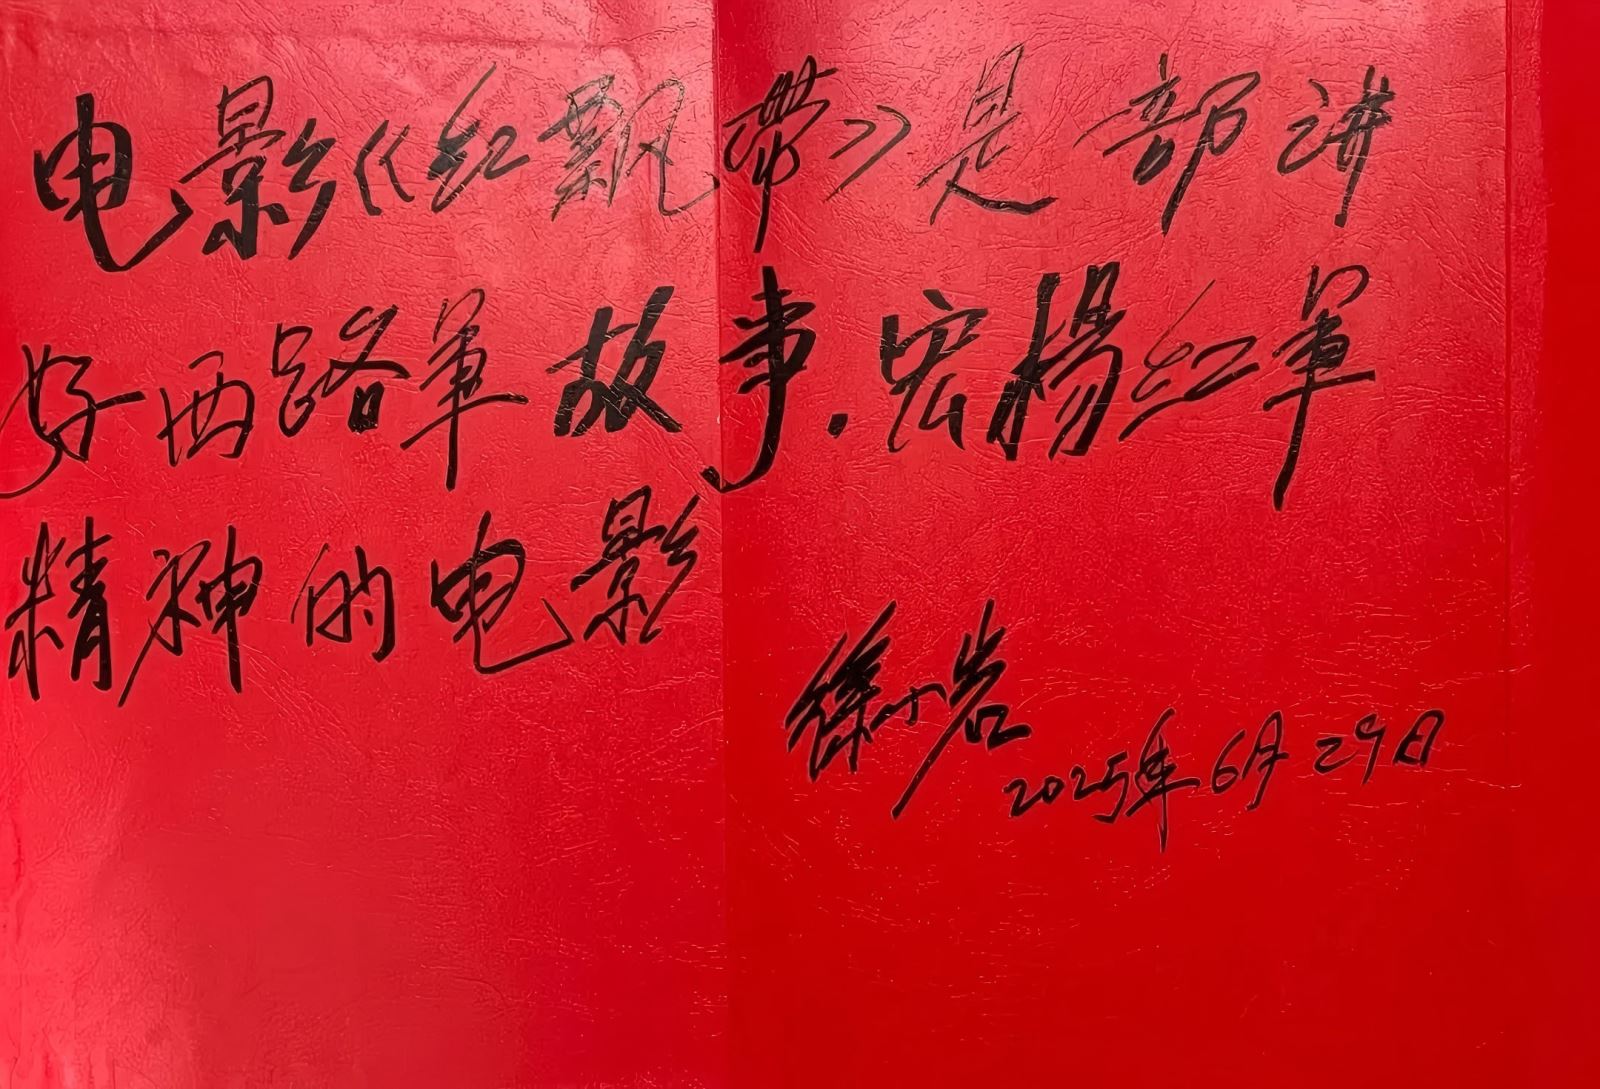 电影《红飘带》是部讲
好西路军故事.宏杨红军
精神的电影
徐小岩
2025年6月29日